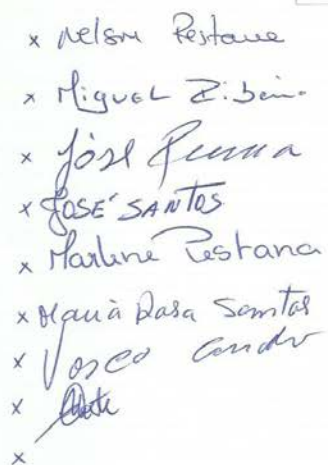 x Nelson Pestana
x Miguel Ribeiro
x José
x JOSÉ SANTOS
x Marlene Pestana
x Maria Rosa Santos
x Vasco
x
x